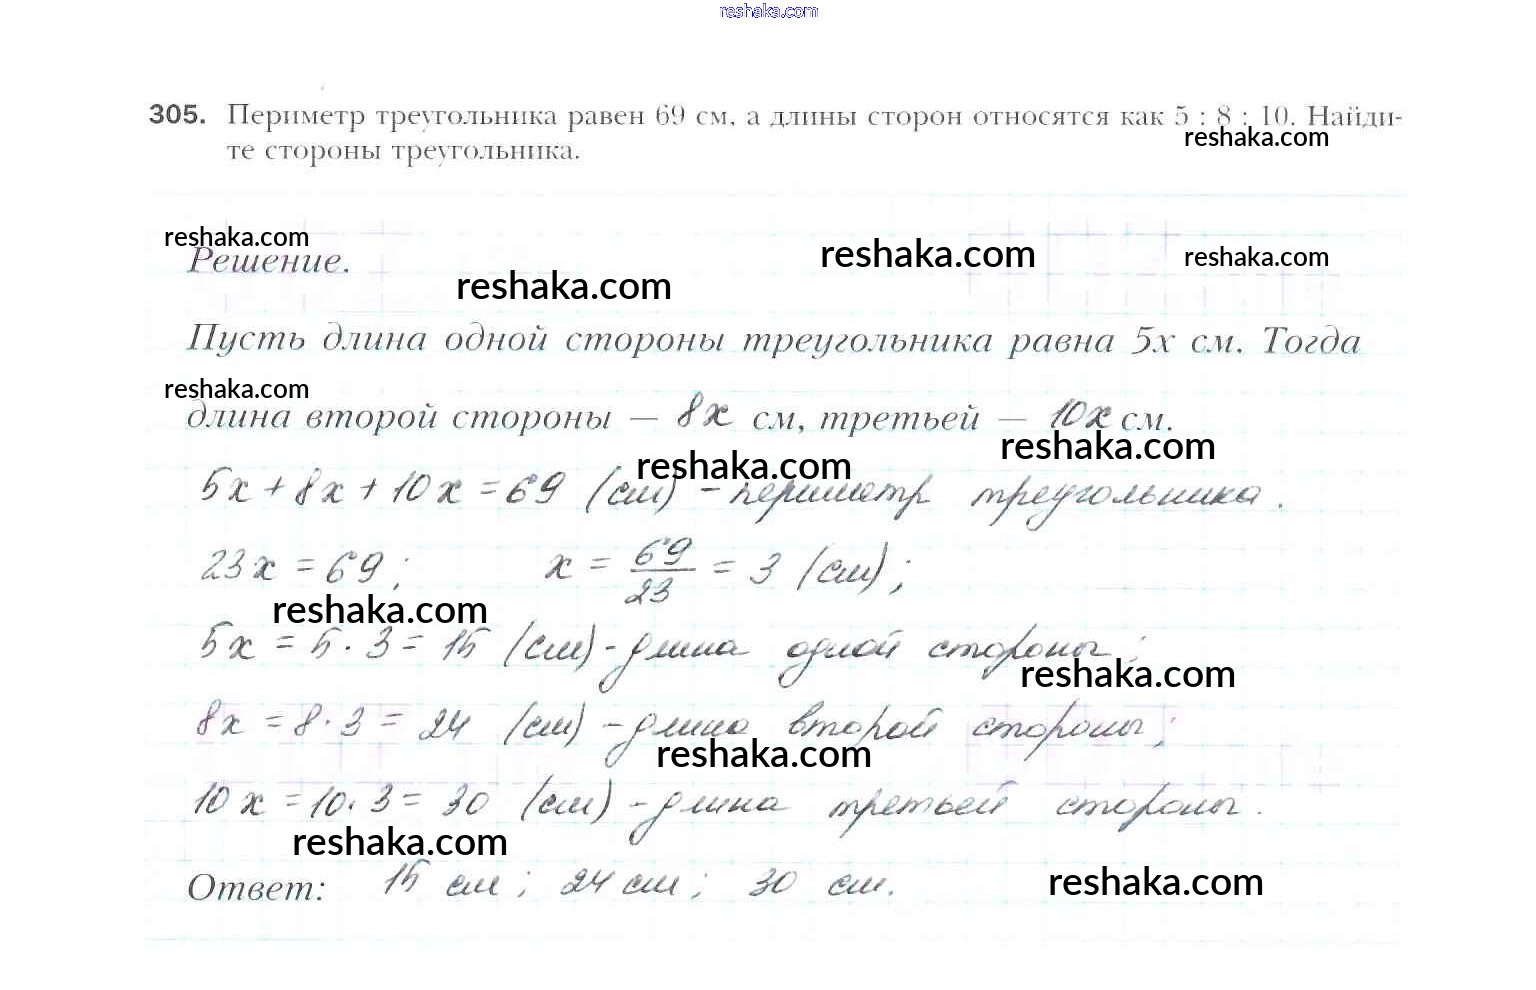 reshaka.com
305. Периметр треугольника равен 69 см, а длины сторон относятся как 5 : 8 : 10. Найди-
reshaka.com
те стороны треугольника.
reshaka.com
reshaka.com
reshaka.com
Решение.
reshaka.com
Пусть длина одной стороны треугольника равна 5x см. Тогда
reshaka.com
длина второй стороны — 8x см, третьей — 10x см.
reshaka.com
reshaka.com
5x + 8x + 10x = 69 (см) - периметр треугольника.
23x = 69; x = 69/23 = 3 (см);
reshaka.com
5x = 5 · 3 = 15 (см) - длина одной стороны;
reshaka.com
8x = 8 · 3 = 24 (см) - длина второй стороны;
reshaka.com
10x = 10 · 3 = 30 (см) - длина третьей стороны.
reshaka.com
Ответ: 15 см; 24 см; 30 см.
reshaka.com